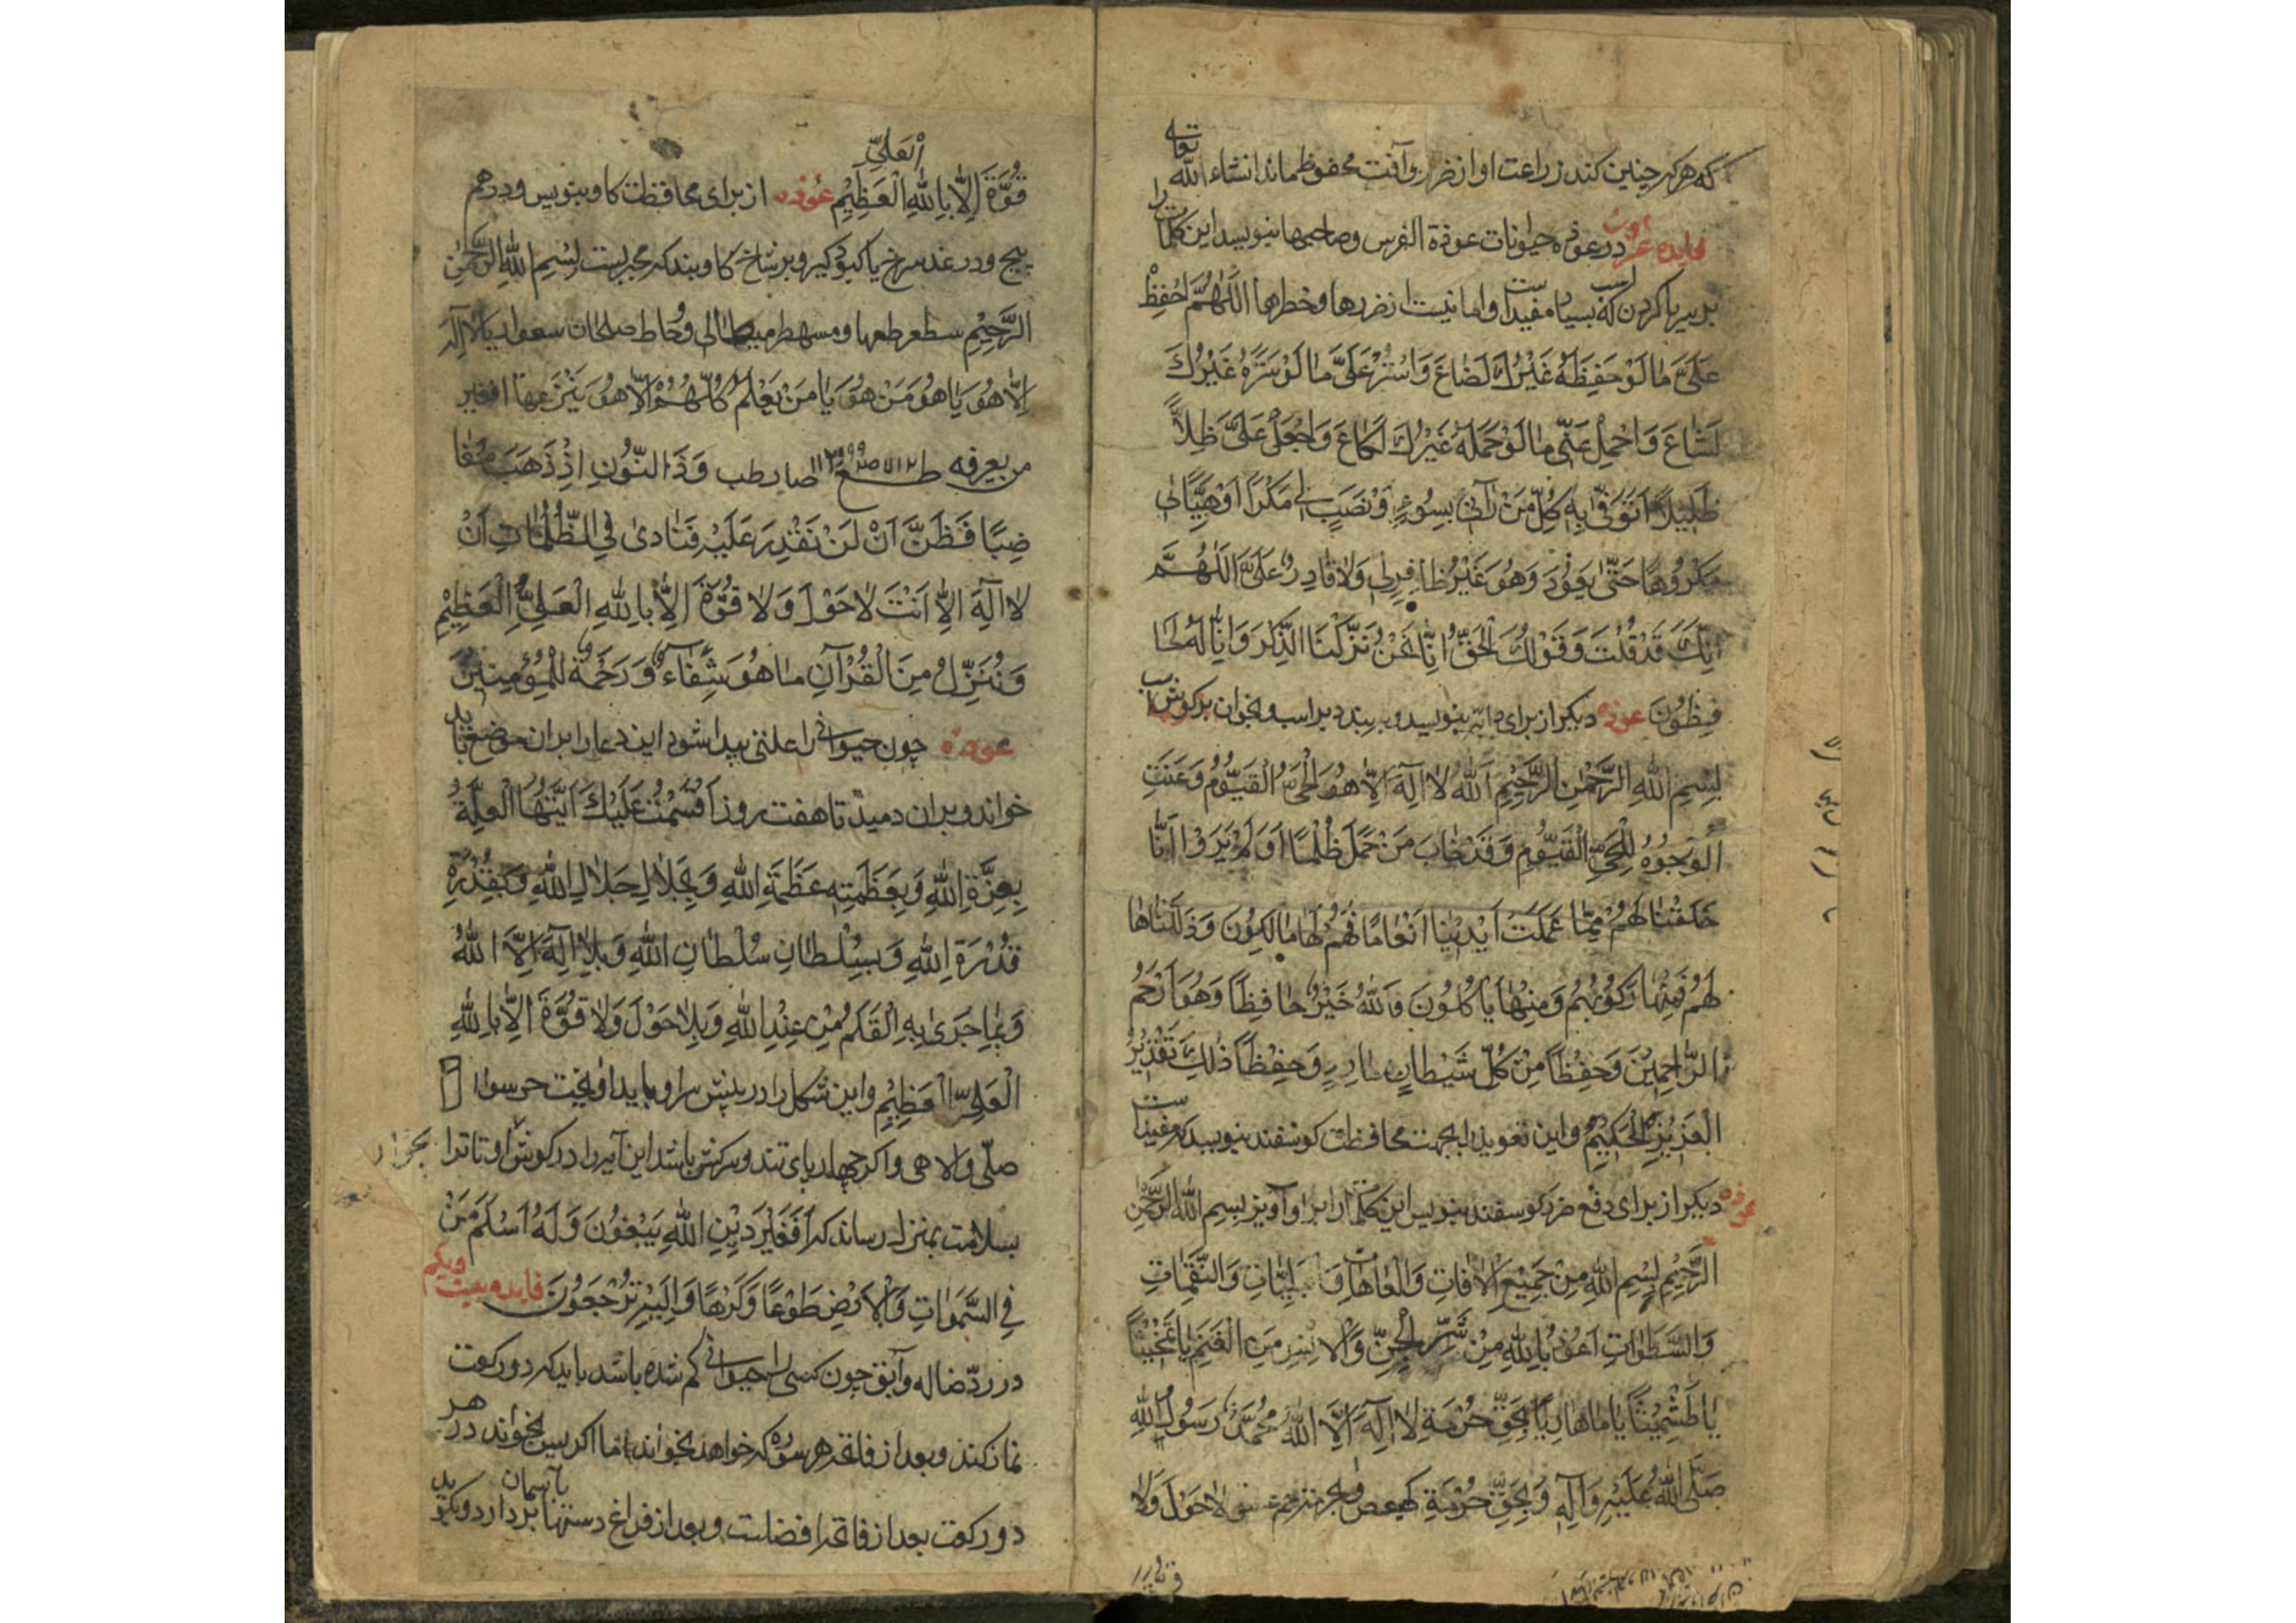 که هر که چنین کند زراعت او از ضرر و آفت محفوظ ماند انشاء الله تعالی
فایده در عوذه حیوانات عوذة الفرس وصاحبها بنویسد این کلمات را
بر سر پا کردن که بسیار مفید است و امانیست از ضررها و خطرها اللّهُمَّ احْفَظْ
عَلَیَّ مَا لَوْ حَفِظَهُ غَیْرُكَ لَضَاعَ وَاسْتُرْ عَلَیَّ مَا لَوْ سَتَرَهُ غَیْرُكَ
لَشَاعَ وَاحْمِلْ عَنِّی مَا لَوْ حَمَلَهُ غَیْرُكَ لَكَاعَ وَاجْعَلْ عَلَیَّ ظِلّاً
ظَلِیلاً اَتَوَقّٰی بِهِ كُلَّ مَنْ رَآنِی بِسُوءٍ وَنَصَبَ لِی مَكْراً اَوْ هَیَّأَ لِی
مَكْرُوهاً حَتّٰی یَعُودَ وَهُوَ غَیْرُ ظَافِرٍ لِی وَلَا قَادِرٍ عَلَیَّ اللّٰهُمَّ
اِنَّكَ قَدْ قُلْتَ وَقَوْلُكَ الْحَقُّ اِنَّا نَحْنُ نَزَّلْنَا الذِّكْرَ وَاِنَّا لَهُ لَحَا
فِظُونَ عوذه دیکر از برای دابّه بنویسد و ببندد بر اسب و بخوان بر کوش اسب
بِسْمِ اللهِ الرَّحْمٰنِ الرَّحِیْمِ اَللهُ لَا اِلٰهَ اِلَّا هُوَ الْحَیُّ الْقَیُّوْمُ وَعَنَتِ
الْوُجُوْهُ لِلْحَیِّ الْقَیُّوْمِ وَقَدْ خَابَ مَنْ حَمَلَ ظُلْمًا اَوَلَمْ یَرَوْا اَنَّا
خَلَقْنَا لَهُمْ مِمَّا عَمِلَتْ اَیْدِیْنَا اَنْعَامًا فَهُمْ لَهَا مَالِكُوْنَ وَذَلَّلْنَاهَا
لَهُمْ فَمِنْهَا رَكُوْبُهُمْ وَمِنْهَا یَأْكُلُوْنَ فَاللهُ خَیْرٌ حَافِظًا وَهُوَ اَرْحَمُ
الرَّاحِمِیْنَ وَحِفْظًا مِنْ كُلِّ شَیْطَانٍ مَارِدٍ وَحِفْظًا ذٰلِكَ تَقْدِیْرُ
الْعَزِیْزِ الْحَكِیْمِ و این تعویذ را بجهت محافظت کوسفند بنویسد که مفید است
عوذه دیکر از برای دفع ضرر کوسفند بنویس این کلمات را بر او آویز بسم الله الرحمن
الرَّحِیْمِ بِسْمِ اللهِ مِنْ جَمِیْعِ الْاٰفَاتِ وَالْعَاهَاتِ وَالْبَلِیَّاتِ وَالنَّقِمَاتِ
وَالسَّطَوَاتِ اَعُوْذُ بِاللهِ مِنْ شَرِّ الْجِنِّ وَالْاِنْسِ مِنَ الْغَنَمِ
بِحَقِّ حُرْمَةِ لَا اِلٰهَ اِلَّا اللهُ مُحَمَّدٌ رَسُوْلُ اللهِ
صَلَّی اللهُ عَلَیْهِ وَآلِهِ وَبِحَقِّ حُرْمَةِ كهیعص لَا حَوْلَ وَلَا
قُوَّةَ اِلَّا بِاللهِ الْعَلِیِّ الْعَظِیْمِ عوذه از برای محافظت کاو بنویس و درهم
پیچ و در غد سرخ یا کبود کیر و بر شاخ کاو بند که مجربست بسم الله الرحمن
الرَّحِیْمِ
اِلَّا هُوَ یَا هُوَ مَنْ هُوَ یَا مَنْ یَعْلَمُ
من یعرفه وَذَا النُّوْنِ اِذْ ذَهَبَ مُغَا
ضِبًا فَظَنَّ اَنْ لَنْ نَقْدِرَ عَلَیْهِ فَنَادٰی فِی الظُّلُمَاتِ اَنْ
لَا اِلٰهَ اِلَّا اَنْتَ لَا حَوْلَ وَلَا قُوَّةَ اِلَّا بِاللهِ الْعَلِیِّ الْعَظِیْمِ
وَنُنَزِّلُ مِنَ الْقُرْآنِ مَا هُوَ شِفَاءٌ وَرَحْمَةٌ لِلْمُؤْمِنِیْنَ
عوذه چون حیوانی را علتی پیدا شود این دعا را بران موضع باید
خواند و بران دمید تا هفت روز اَقْسَمْتُ عَلَیْكَ اَیَّتُهَا الْعِلَّةُ
بِعِزَّةِ اللهِ وَبِعَظَمَتِهِ عَظَمَةِ اللهِ وَبِجَلَالِ جَلَالِ اللهِ وَبِقُدْرَةِ
قُدْرَةِ اللهِ وَبِسُلْطَانِ سُلْطَانِ اللهِ وَبِلَا اِلٰهَ اِلَّا اللهُ
وَبِمَا جَرٰی بِهِ الْقَلَمُ مِنْ عِنْدِ اللهِ وَبِلَا حَوْلَ وَلَا قُوَّةَ اِلَّا بِاللهِ
الْعَلِیِّ الْعَظِیْمِ و این شکل را در پیش سر او باید آویخت
و اکر چهارپای تند و سرکش باشد این آیه را در کوش او تا ترا
بسلامت بمنزل رساند که اَفَغَیْرَ دِیْنِ اللهِ یَبْغُوْنَ وَلَهُ اَسْلَمَ مَنْ
فِی السَّمٰوَاتِ وَالْاَرْضِ طَوْعًا وَكَرْهًا وَاِلَیْهِ تُرْجَعُوْنَ فایده بیست ویکم
در ردّ ضاله و آبق چون کسی را حیوانی کم شده باشد باید که دو رکعت
نماز کند و بعد از فاتحه هر سوره که خواهد بخواند اما اکر یس بخواند در هر
دو رکعت بعد از فاتحه افضلست و بعد از فراغ دستها بآسمان بردارد و بکوید